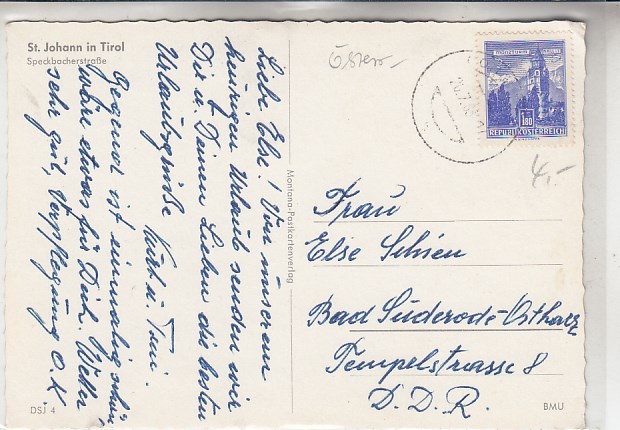 St. Johann in Tirol
Speckbacherstraße
Liebe Else! Von unserem
heurigen Urlaub senden wir
Dir u. Deinen Lieben die besten
Urlaubsgrüße
Kurt u. Toni.
Gegend ist einmalig schön
wäre etwas für Dich. Wetter
sehr gut, Verpflegung O.K.
DSJ 4
Montana-Postkartenverlag
Österr-
REPUBLIK ÖSTERREICH
1.80
4,-
Frau
Else Schien
Bad Suderode-Ostharz
Tempelstrasse 8
D.D.R.
BMU